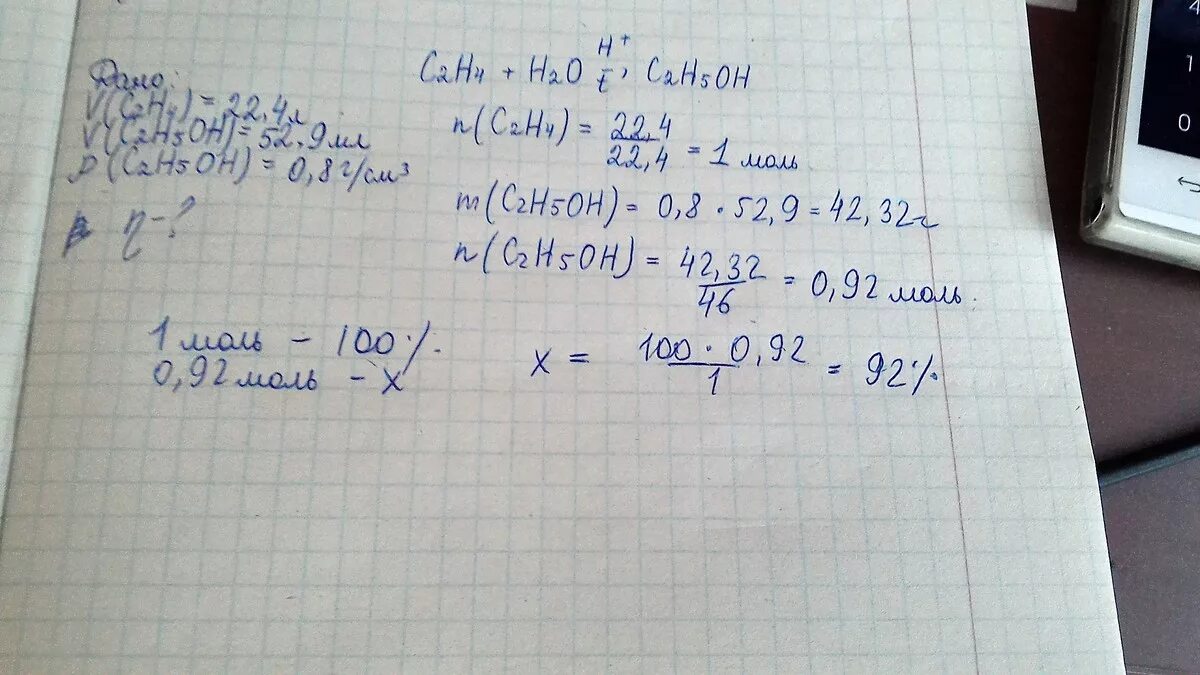 Дано:
V(C2H4) = 22.4л
V(C2H5OH) = 52.9мл
D(C2H5OH) = 0,8г/см³
η-?
C2H4 + H2O H⁺ t, C2H5OH
n(C2H4) = 22,4/22,4 = 1 моль
m(C2H5OH) = 0,8 · 52,9 = 42,32г
n(C2H5OH) = 42,32/46 = 0,92 моль.
1 моль - 100%.
0,92 моль - x
x = 100 · 0,92/1 = 92%.
4
1
0